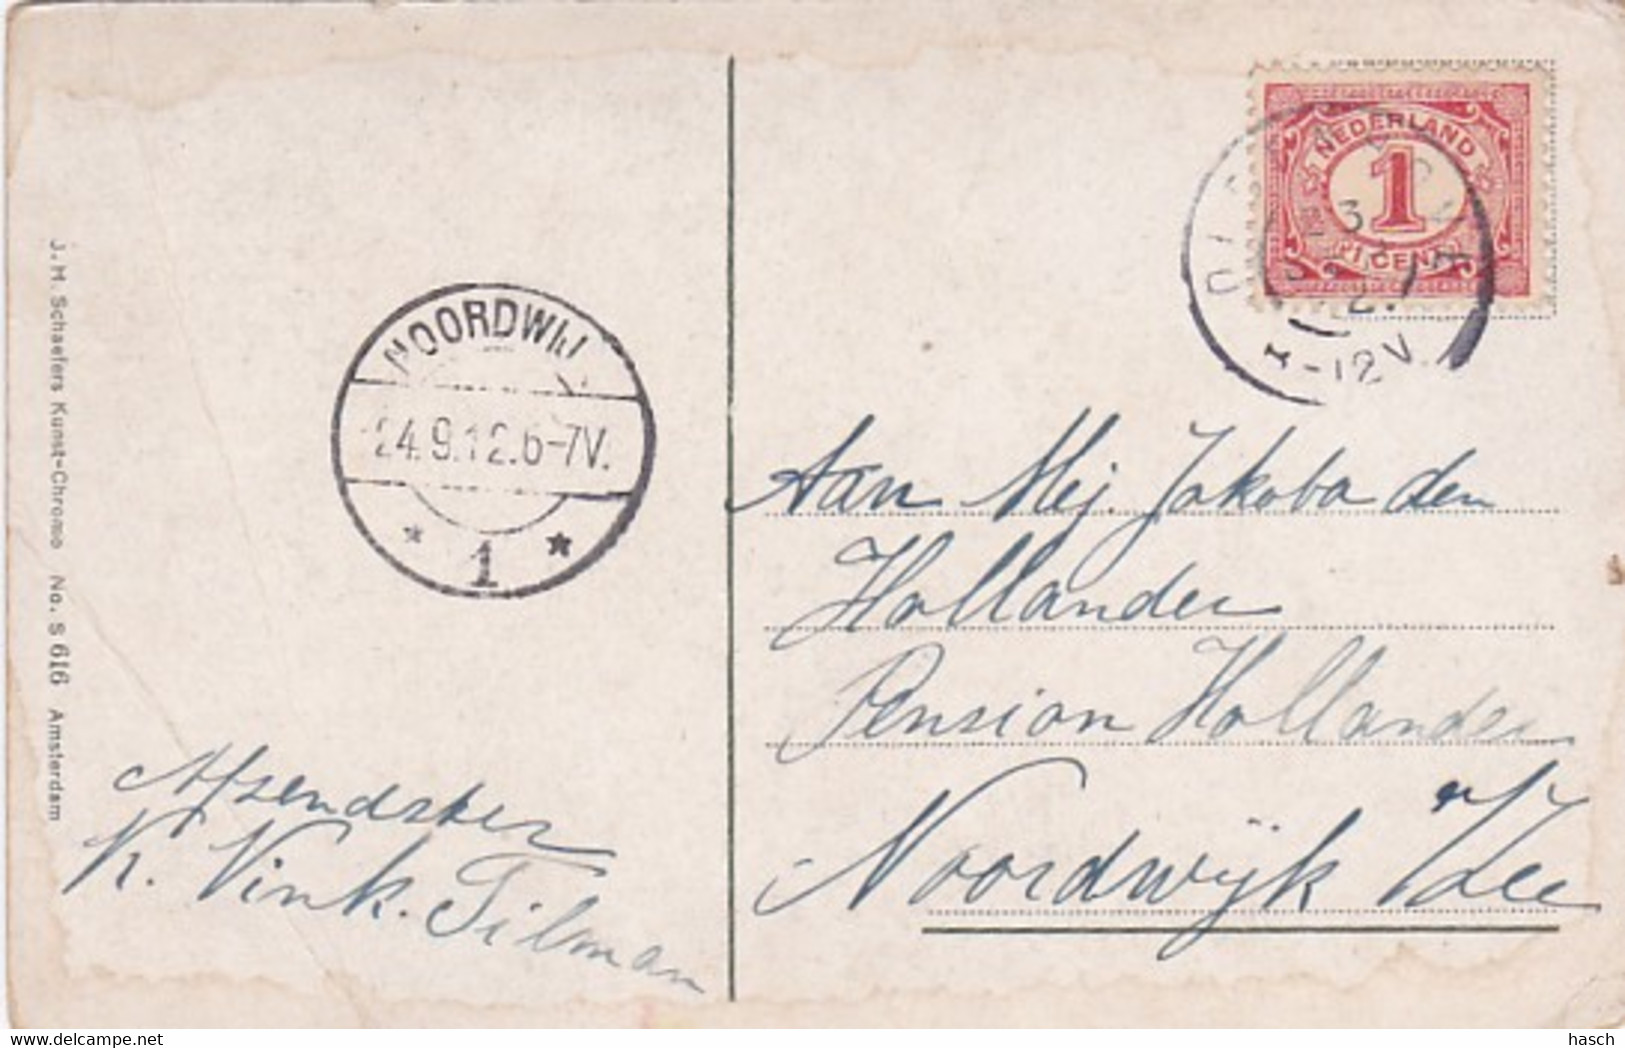 J. H. Schaefers Kunst-Chromo No. S 616 Amsterdam
NOORDWIJ
24.9.12.6-7V.
* 1 *
NEDERLAND
1
1 CENT
-12V
Aan Mej. Jakoba den
Hollander
Pension Hollander
Noordwijk a/Zee
Afzendster
K. Vink. Tilman
https://www.delcampe.net
hasch